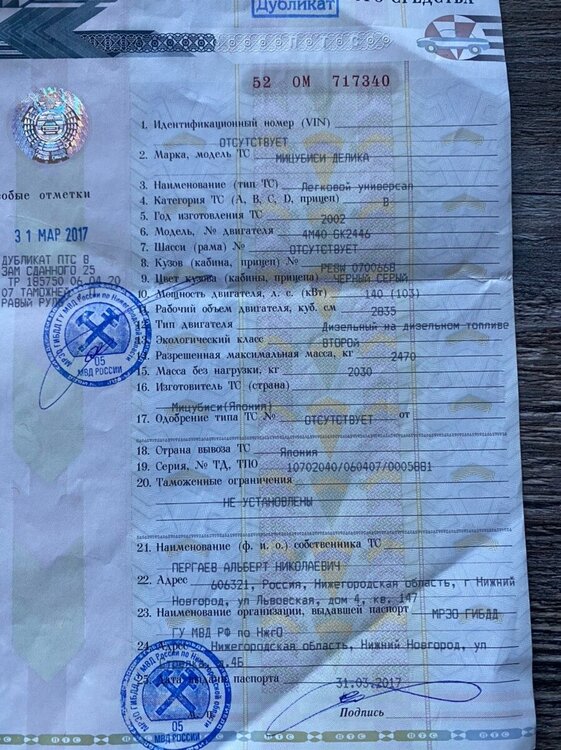 Дубликат
СРЕДСТВА
ПТС
52 ОМ 717340
1. Идентификационный номер (VIN)
ОТСУТСТВУЕТ
2. Марка, модель ТС МИЦУБИСИ ДЕЛИКА
3. Наименование (тип ТС) Легковой универсал
4. Категория ТС (А, В, С, D, прицеп) В
5. Год изготовления ТС 2002
6. Модель, № двигателя 4М40 GK2446
7. Шасси (рама) № ОТСУТСТВУЕТ
8. Кузов (кабина, прицеп) № PE8W 0700668
9. Цвет кузова (кабины, прицепа) ЧЕРНЫЙ СЕРЫЙ
10. Мощность двигателя, л. с. (кВт) 140 (103)
11. Рабочий объем двигателя, куб. см 2835
12. Тип двигателя Дизельный на дизельном топливе
13. Экологический класс ВТОРОЙ
14. Разрешенная максимальная масса, кг 2470
15. Масса без нагрузки, кг 2030
16. Изготовитель ТС (страна)
Мицубиси(Япония)
17. Одобрение типа ТС № ОТСУТСТВУЕТ от
18. Страна вывоза ТС Япония
19. Серия, № ТД, ТПО 10702040/060407/0005881
20. Таможенные ограничения
НЕ УСТАНОВЛЕНЫ
21. Наименование (ф. и. о.) собственника ТС
ПЕРГАЕВ АЛЬБЕРТ НИКОЛАЕВИЧ
22. Адрес 606321, Россия, Нижегородская область, г Нижний
Новгород, ул Львовская, дом 4, кв. 147
23. Наименование организации, выдавшей паспорт МРЭО ГИБДД
ГУ МВД РФ по НжгО
24. Адрес Нижегородская область, Нижний Новгород, ул
д.4Б
25. Дата выдачи паспорта 31.03.2017
Подпись
обые отметки
31 МАР 2017
ДУБЛИКАТ ПТС В
ЗАМ СДАННОГО 25
ТР 185750 06.04.20
07 ТАМОЖНЕ
РАВЫЙ РУЛ
МРЭО ГИБДД ГУ МВД России по Нижегородской области
05
МВД РОССИИ
МРЭО ГИБДД ГУ МВД России по Нижегородской области
05
МВД РОССИИ
ПТС ПТС